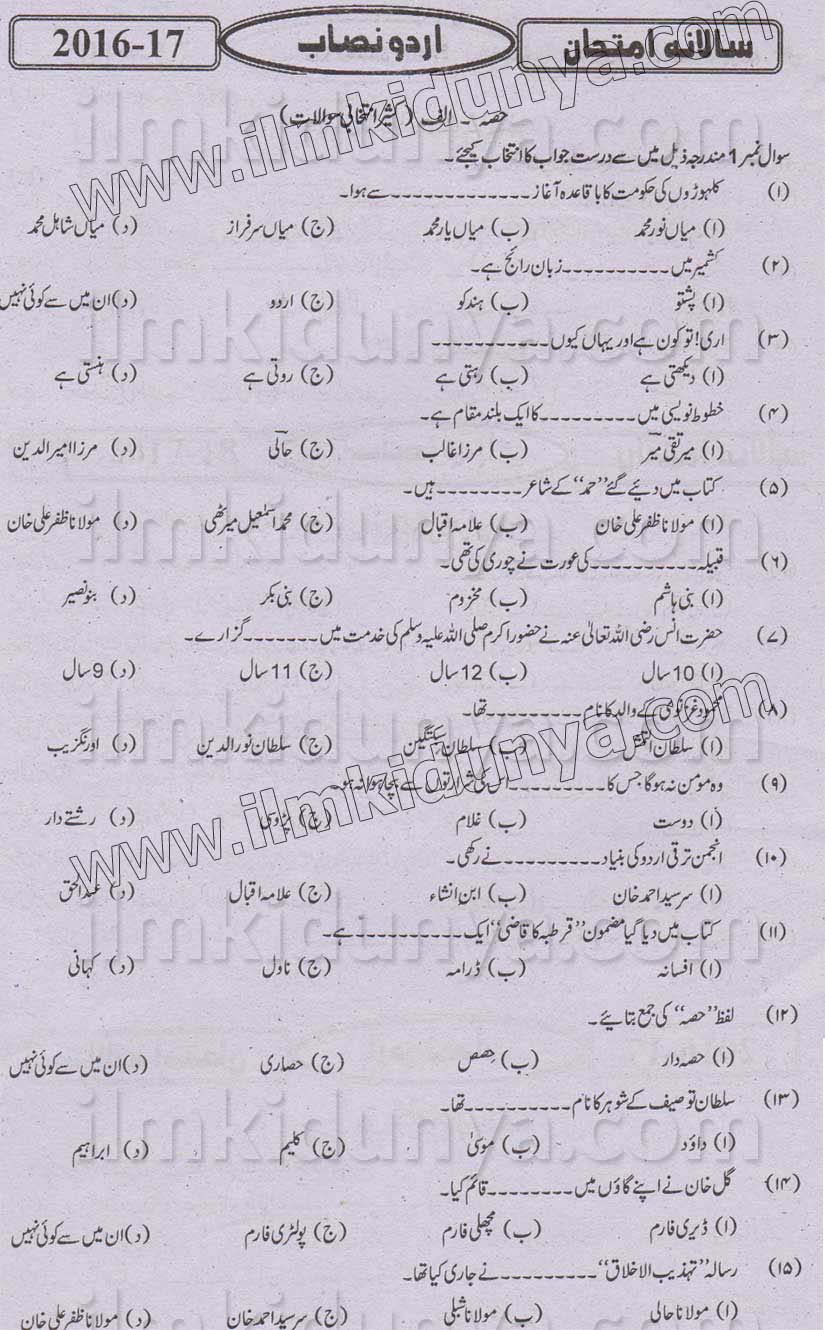 سالانہ امتحان اردو نصاب 2016-17
حصہ ۔ الف (کثیر انتخابی سوالات)
سوال نمبر 1 مندرجہ ذیل میں سے درست جواب کا انتخاب کیجئے۔
(۱) کلہوڑوں کی حکومت کا باقاعدہ آغاز ------------- سے ہوا۔
(ا) میاں نور محمد (ب) میاں یار محمد (ج) میاں سرفراز (د) میاں شاہل محمد
(۲) کشمیر میں ---------- زبان رائج ہے۔
(ا) پشتو (ب) ہندکو (ج) اردو (د) ان میں سے کوئی نہیں
(۳) اری! تو کون ہے اور یہاں کیوں ----------
(ا) دیکھتی ہے (ب) رہتی ہے (ج) روتی ہے (د) ہنستی ہے
(۴) خطوط نویسی میں --------- کا ایک بلند مقام ہے۔
(ا) میر تقی میر (ب) مرزا غالب (ج) حالی (د) مرزا امیر الدین
(۵) کتاب میں دیئے گئے "حمد" کے شاعر -------- ہیں۔
(ا) مولانا ظفر علی خان (ب) علامہ اقبال (ج) محمد اسمٰعیل میرٹھی (د) مولانا ظفر علی خان
(۶) قبیلہ ---------- کی عورت نے چوری کی تھی۔
(ا) بنی ہاشم (ب) مخزوم (ج) بنی بکر (د) بنو نصیر
(۷) حضرت انس رضی اللہ تعالیٰ عنہ نے حضور اکرم صلی اللہ علیہ وسلم کی خدمت میں ------- گزارے۔
(ا) 10 سال (ب) 12 سال (ج) 11 سال (د) 9 سال
(۸) محمود غزنوی کے والد کا نام --------- تھا۔
(ا) سلطان التمش (ب) سلطان سبکتگین (ج) سلطان نور الدین (د) اورنگزیب
(۹) وہ مومن نہ ہوگا جس کا --------- اس کی شرارتوں سے بچا ہوا نہ ہو۔
(ا) دوست (ب) غلام (ج) پڑوسی (د) رشتے دار
(۱۰) انجمن ترقی اردو کی بنیاد --------- نے رکھی۔
(ا) سر سید احمد خان (ب) ابن انشاء (ج) علامہ اقبال (د) عبدالحق
(۱۱) کتاب میں دیا گیا مضمون "قرطبہ کا قاضی" ایک ----------- ہے۔
(ا) افسانہ (ب) ڈرامہ (ج) ناول (د) کہانی
(۱۲) لفظ "حصہ" کی جمع بتائیے۔
(ا) حصہ دار (ب) حصص (ج) حصاری (د) ان میں سے کوئی نہیں
(۱۳) سلطان توصیف کے شوہر کا نام ---------- تھا۔
(ا) داؤد (ب) موسیٰ (ج) کلیم (د) ابراہیم
(۱۴) گل خان نے اپنے گاؤں میں -------- قائم کیا۔
(ا) ڈیری فارم (ب) مچھلی فارم (ج) پولٹری فارم (د) ان میں سے کوئی نہیں
(۱۵) رسالہ "تہذیب الاخلاق" -------- نے جاری کیا تھا۔
(ا) مولانا حالی (ب) مولانا شبلی (ج) سر سید احمد خان (د) مولانا ظفر علی خان
www.ilmkidunya.com
www.ilmkidunya.com
ilmkidunya.com
ilmkidunya.com
ilmkidunya.com
ilmkidunya.com
ilmkidunya.com
ilmkidunya.com
ilmkidunya.com